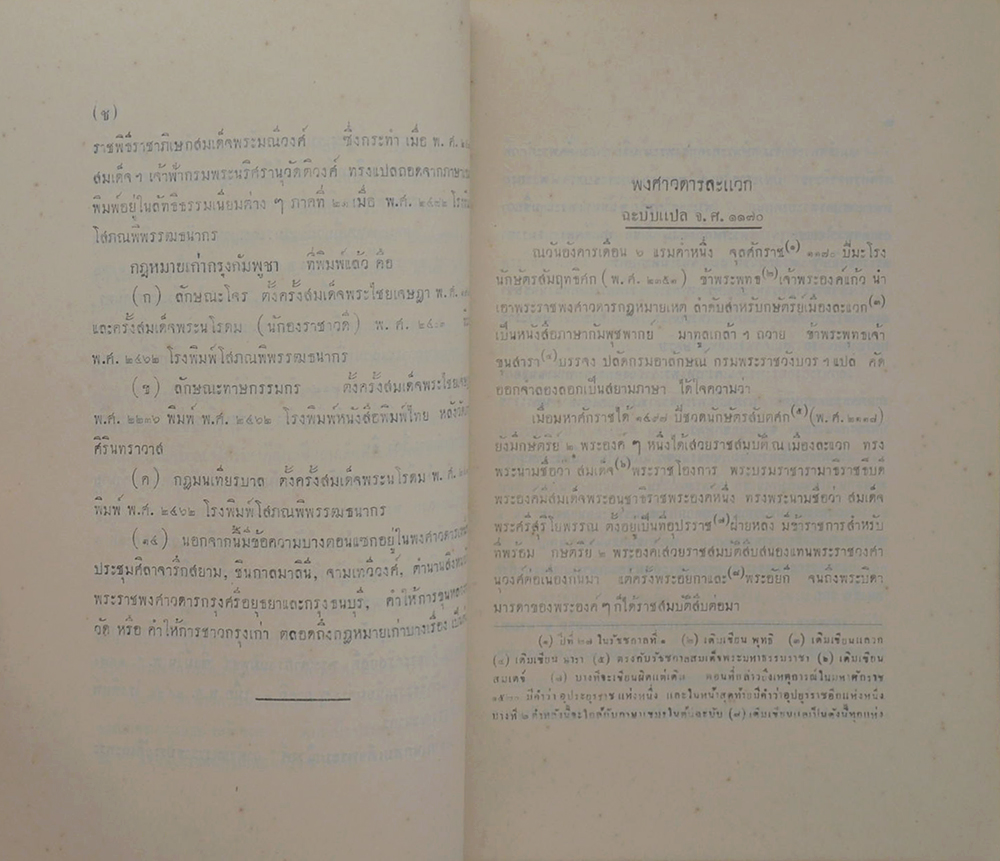 (ช)
ราชพิธีราชาภิเษกสมเด็จพระมณีวงศ์ ซึ่งกระทำ เมื่อ พ. ศ.
สมเด็จ ฯ เจ้าฟ้ากรมพระนริศรานุวัดติวงศ์ ทรงแปลถอดจากภาษา
พิมพ์อยู่ในลัทธิธรรมเนียมต่าง ๆ ภาคที่ ๒๑ เมื่อ พ.ศ. ๒๔๘๒ โรงพิมพ์
โสภณพิพรรฒธนากร
กฎหมายเก่ากรุงกัมพูชา ที่พิมพ์แล้ว คือ
(ก) ลักษณะโจร ตั้งครั้งสมเด็จพระไชยเจษฎา พ.ศ.
และครั้งสมเด็จพระนโรดม (นักองราชาวดี) พ. ศ.
พ.ศ. ๒๔๖๒ โรงพิมพ์โสภณพิพรรฒธนากร
(ข) ลักษณะทาษกรรมกร ตั้งครั้งสมเด็จพระไชย
พ.ศ. ๒๒๓๖ พิมพ์ พ.ศ. ๒๔๖๒ โรงพิมพ์หนังสือพิมพ์ไทย หลังวัด
ศิรินทราวาส
(ค) กฎมนเทียรบาล ตั้งครั้งสมเด็จพระนโรดม พ. ศ.
พิมพ์ พ.ศ. ๒๔๖๒ โรงพิมพ์โสภณพิพรรฒธนากร
(๑๔) นอกจากนี้มีข้อความบางตอนแซกอยู่ในพงศาวดาร
ประชุมศิลาจารึกสยาม, ชินกาลมาลินี, จามเทวีวงศ์, ตำนานสิงห
พระราชพงศาวดารกรุงศรีอยุธยาและกรุงธนบุรี, คำให้การขุนหลวง
วัด หรือ คำให้การชาวกรุงเก่า ตลอดถึงกฎหมายเก่าบางเรื่อง
พงศาวดารละแวก
ฉะบับแปล จ. ศ. ๑๑๗๐
ณวันอังคารเดือน ๖ แรมค่ำหนึ่ง จุลศักราช(๑) ๑๑๗๐ ปีมะโรง
นักษัตรสัมฤทธิศก (พ. ศ. ๒๓๕๑) ข้าพระพุทธ(๒)เจ้าพระองค์แก้ว นำ
เอาพระราชพงศาวดารกฎหมายเหตุ ลำดับสำหรับกษัตริย์เมืองละแวก(๓)
เป็นหนังสือภาษากัมพุชพากย์ มาทูลเกล้า ฯ ถวาย ข้าพระพุทธเจ้า
ขุนสารา(๔)บรรจง ปลัดกรมอาลักษณ์ กรมพระราชวังบวร ฯ แปล คัด
ออกจำลองลอกเป็นสยามภาษา ได้ใจความว่า
เมื่อมหาศักราชได้ ๑๔๙๗ ปีชวดนักษัตรสัปตศก(๕) (พ.ศ. ๒๑๑๘)
ยังมีกษัตริย์ ๒ พระองค์ ๆ หนึ่งได้เสวยราชสมบัติณ เมืองละแวก ทรง
พระนามชื่อว่า สมเด็จ(๖)พระราชโองการ พระบรมราชารามาธิราชธิบดี
พระองค์มีสมเด็จพระอนุชาธิราชพระองค์หนึ่ง ทรงพระนามชื่อว่า สมเด็จ
พระศรีสุริโยพรรณ ตั้งอยู่เป็นที่อุปราช(๗)ฝ่ายหลัง มีข้าราชการสำหรับ
ที่พร้อม กษัตริย์ ๒ พระองค์เสวยราชสมบัติสืบสนองแทนพระราชวงศา
นุวงศ์ต่อเนื่องกันมา แต่ครั้งพระอัยกาและ(๘)พระอัยกี จนถึงพระบิดา
มารดาของพระองค์ ๆ ก็ได้ราชสมบัติสืบต่อมา
(๑) ปีที่ ๒๗ ในรัชชกาลที่ ๑ (๒) เดิมเขียน พุทธิ (๓) เดิมเขียนแลวก
(๔) เดิมเขียน นารา (๕) ตรงกับรัชกาลสมเด็จพระมหาธรรมราชา (๖) เดิมเขียน
สมเดจ์ (๗) บางทีจะเขียนผิดแต่เดิม ตอนที่กล่าวถึงเหตุการณ์ในมหาศักราช
มีคำว่า อุประยุราช แห่งหนึ่ง และในหน้าสุดท้ายมีคำว่าอุปยุราชอีกแห่งหนึ่ง
บางที ๒ คำหลังนี้จะใกล้กับภาษาเขมรในต้นฉะบับ (๘) เดิมเขียนแลเป็นดังนี้ทุกแห่ง